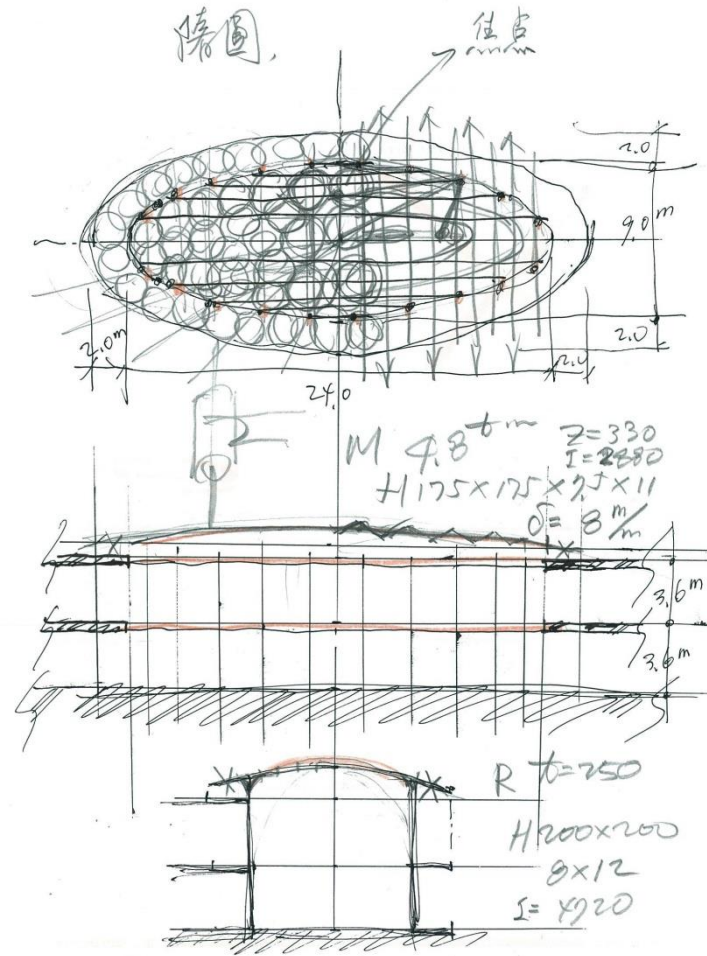 楕圓,
焦点
2.0
9.0m
2.0
2.0m
24.0
2.0
M 4.8tm
Z=330
I=2880
H175×175×7.5×11
δ=8m/m
3.6m
3.6m
R t=250
H200×200
8×12
I=4720